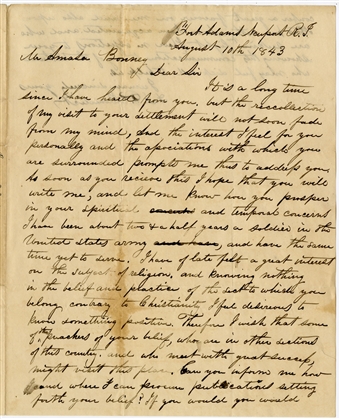 Fort Adams Newport R.I.
August 10th 1843
Mr Amasa Bonney
Dear Sir
It is a long time
since I have heard from you, but the recollection
of my visit to your settlement will not soon fade
from my mind, and the interest I feel for you
personally and the associations with which you
are surrounded prompts me thus to address you.
As soon as you recieve this I hope that you will
write me, and let me know how you prosper
in your spiritual and temporal concerns
I have been about two & a half years a soldier in the
United States army and have the same
time yet to serve. I have of late felt a great interest
on the subject of religion, and knowing nothing
in the belief and practice of the sect to which you
belong contrary to Christianity I feel desireous to
know something positive. Therefore I wish that some
of the preachers of your belief, who are in other sections
of this country, and who meet with great success,
might visit this place. Can you inform me how
and where I can procure publications setting
forth your belief? If you would you would